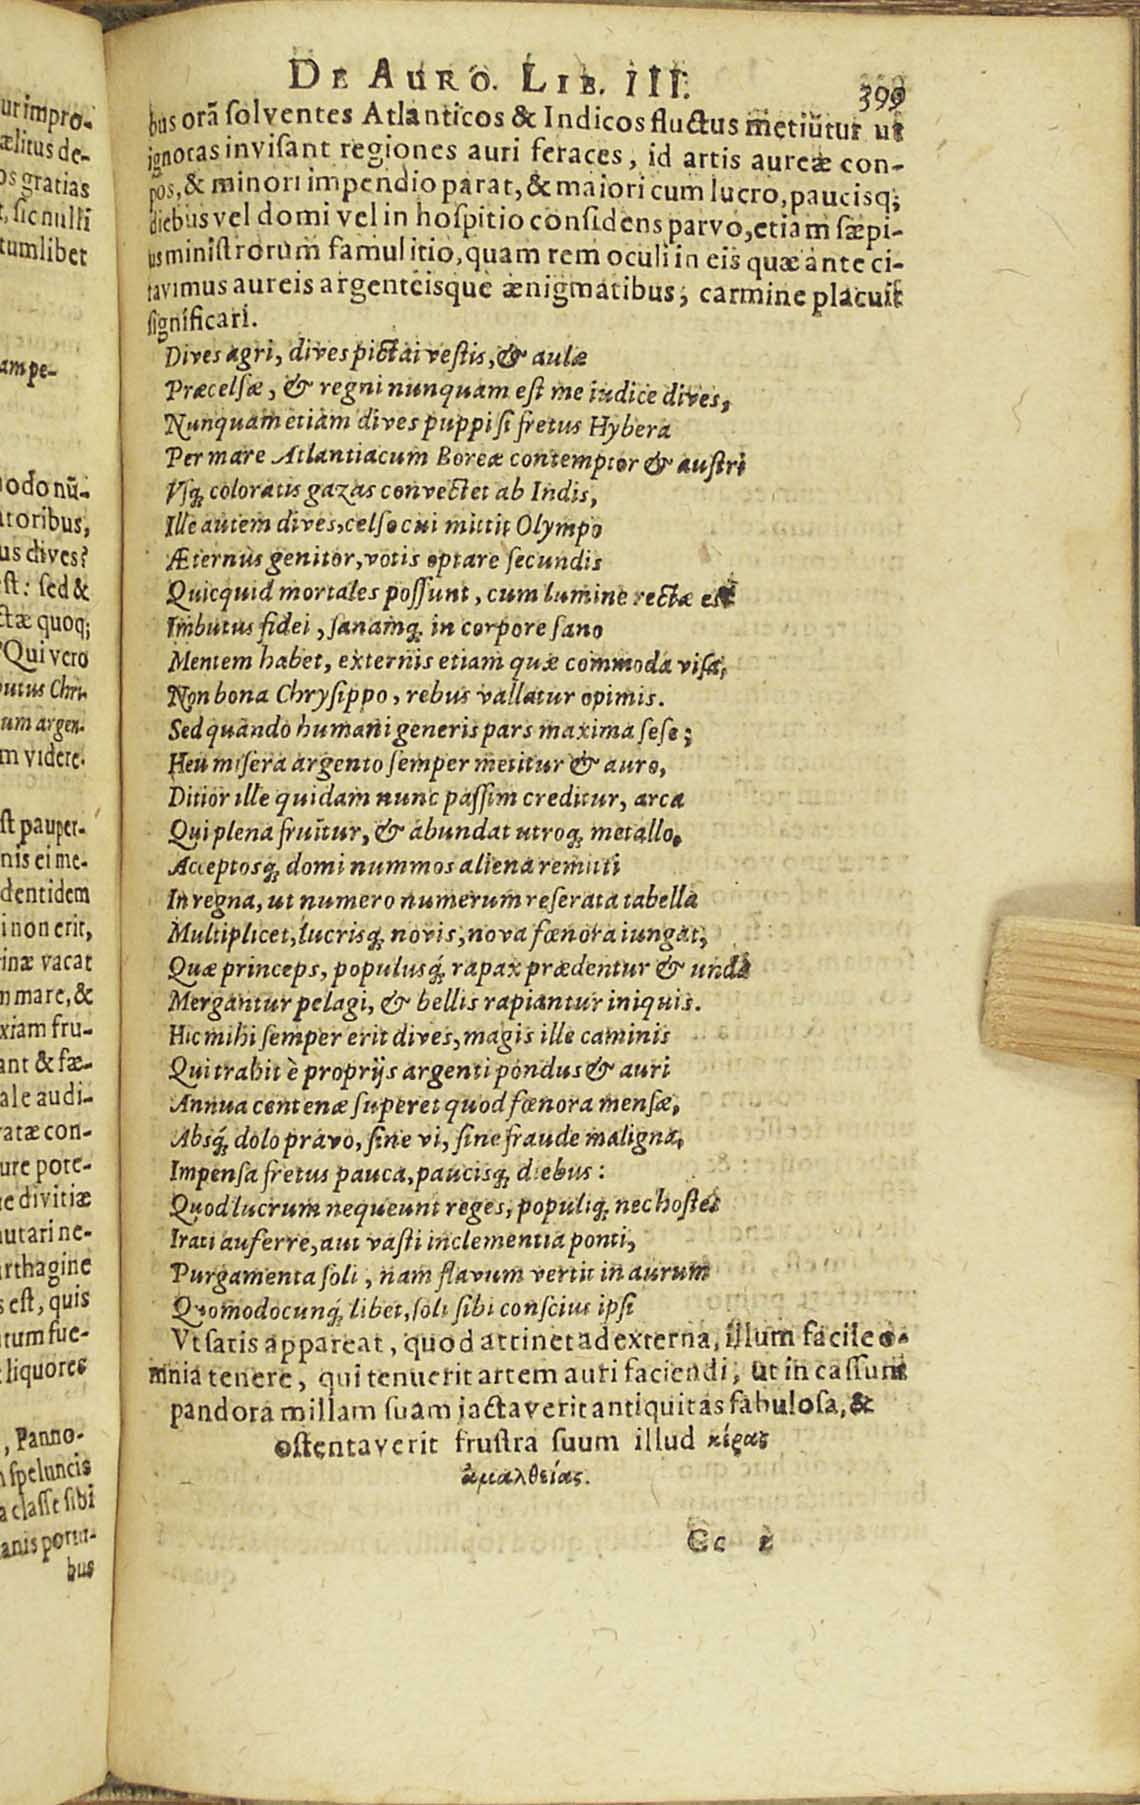 ur impro-
ælitus de-
os gratias
t, sic nulli
tumlibet
am pe-
modo nũ-
atoribus,
us dives?
est: sed &
ctæ quoq;
Qui vero
butus Chri-
um argen-
m videre-
st pauper-
nis ei me-
dentidem
i non erit,
rinæ vacat
n mare, &
xiam fru-
ant & fæ-
ale audi-
ratæ con-
ure pote-
e divitiæ
utari ne-
arthagine
s est, quis
tum fue-
liquores
, Panno-
n speluncis
a classe sibi
anis portu-
bus
DE AURO. LIB. III. 399
bus orã solventes Atlanticos & Indicos fluctus metiũtur ut
ignotas invisant regiones auri feraces, id artis aureæ con-
pos, & minori impendio parat, & maiori cum lucro, paucisq;
diebus vel domi vel in hospitio considens parvo, etiam sæpi-
us ministrorum famulitio, quam rem oculi in eis quæ ante ci-
tavimus aureis argenteisque ænigmatibus, carmine placuit
significari.
Dives agri, dives pictai vestis, & aulæ
Præcelsæ, & regni nunquam est me iudice dives,
Nunquam etiam dives puppi si fretus Hybera
Per mare Atlantiacum Boreæ contemptor & austri
Usq; coloratis gazas convectet ab Indis,
Ille autem dives, celso cui mittit Olympo
Æternus genitor, votis optare secundis
Quicquid mortales possunt, cum lumine rectæ est
Imbutus fidei, sanamq; in corpore sano
Mentem habet, externis etiam quæ commoda visa,
Non bona Chrysippo, rebus vallatur opimis.
Sed quando humani generis pars maxima sese;
Heu misera argento semper metitur & auro,
Ditior ille quidam nunc passim creditur, arca
Qui plena fruitur, & abundat utroq; metallo.
Acceptosq; domi nummos aliena remitti
In regna, ut numero numerum reserata tabella
Multiplicet, lucrisq; novis, nova fœnora iungat,
Quæ princeps, populusq́; rapax prædentur & unda
Mergantur pelagi, & bellis rapiantur iniquis.
Hic mihi semper erit dives, magis ille caminis
Qui trahit è proprijs argenti pondus & auri
Annua centenæ superet quod fœnora mensæ,
Absq́; dolo pravo, sine vi, sine fraude maligna,
Impensa fretus pauca, paucisq; diebus:
Quod lucrum nequeunt reges, populiq; nec hostes
Irati auferre, aut vasti inclementia ponti,
Purgamenta soli, nam flavum vertit in aurum
Quomodocunq́; libet, soli sibi conscius ipsi
Vt satis appareat, quod attinet ad externa, illum facile o-
mnia tenere, qui tenuerit artem auri faciendi, ut in cassum
pandora millam suam jactaverit antiquitas fabulosa, &
ostentaverit frustra suum illud κέρας
ἀμαλθείας.
Cc 2